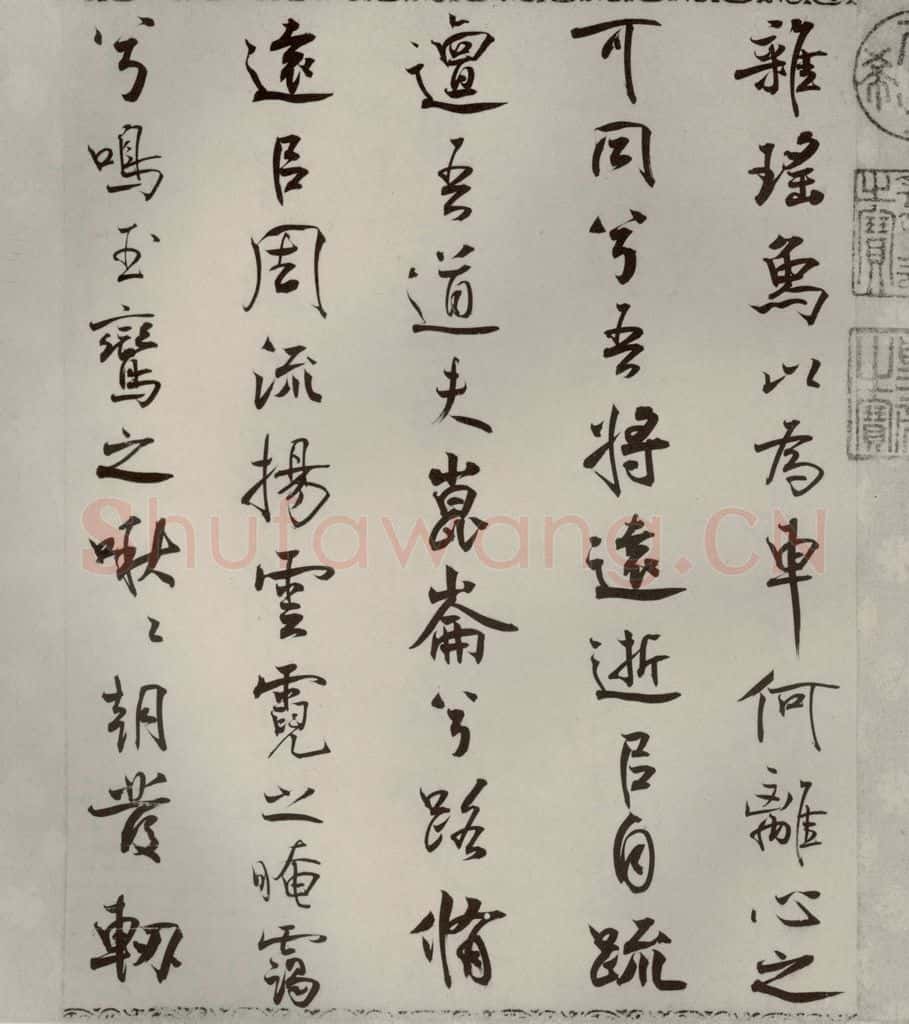 雜瑤象以為車何離心之
可同兮吾將遠逝㠯自疏
邅吾道夫崑崙兮路脩
遠㠯周流揚雲霓之晻靄
兮鳴玉鸞之啾〻朝發軔
之寶
之寶
Shufawang.CN